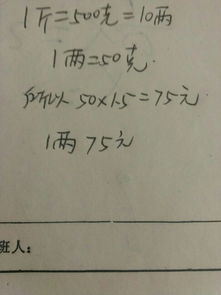 1斤=500克=10两
1两=50克.
所以 50×1.5=75元
1两 75元
班人：